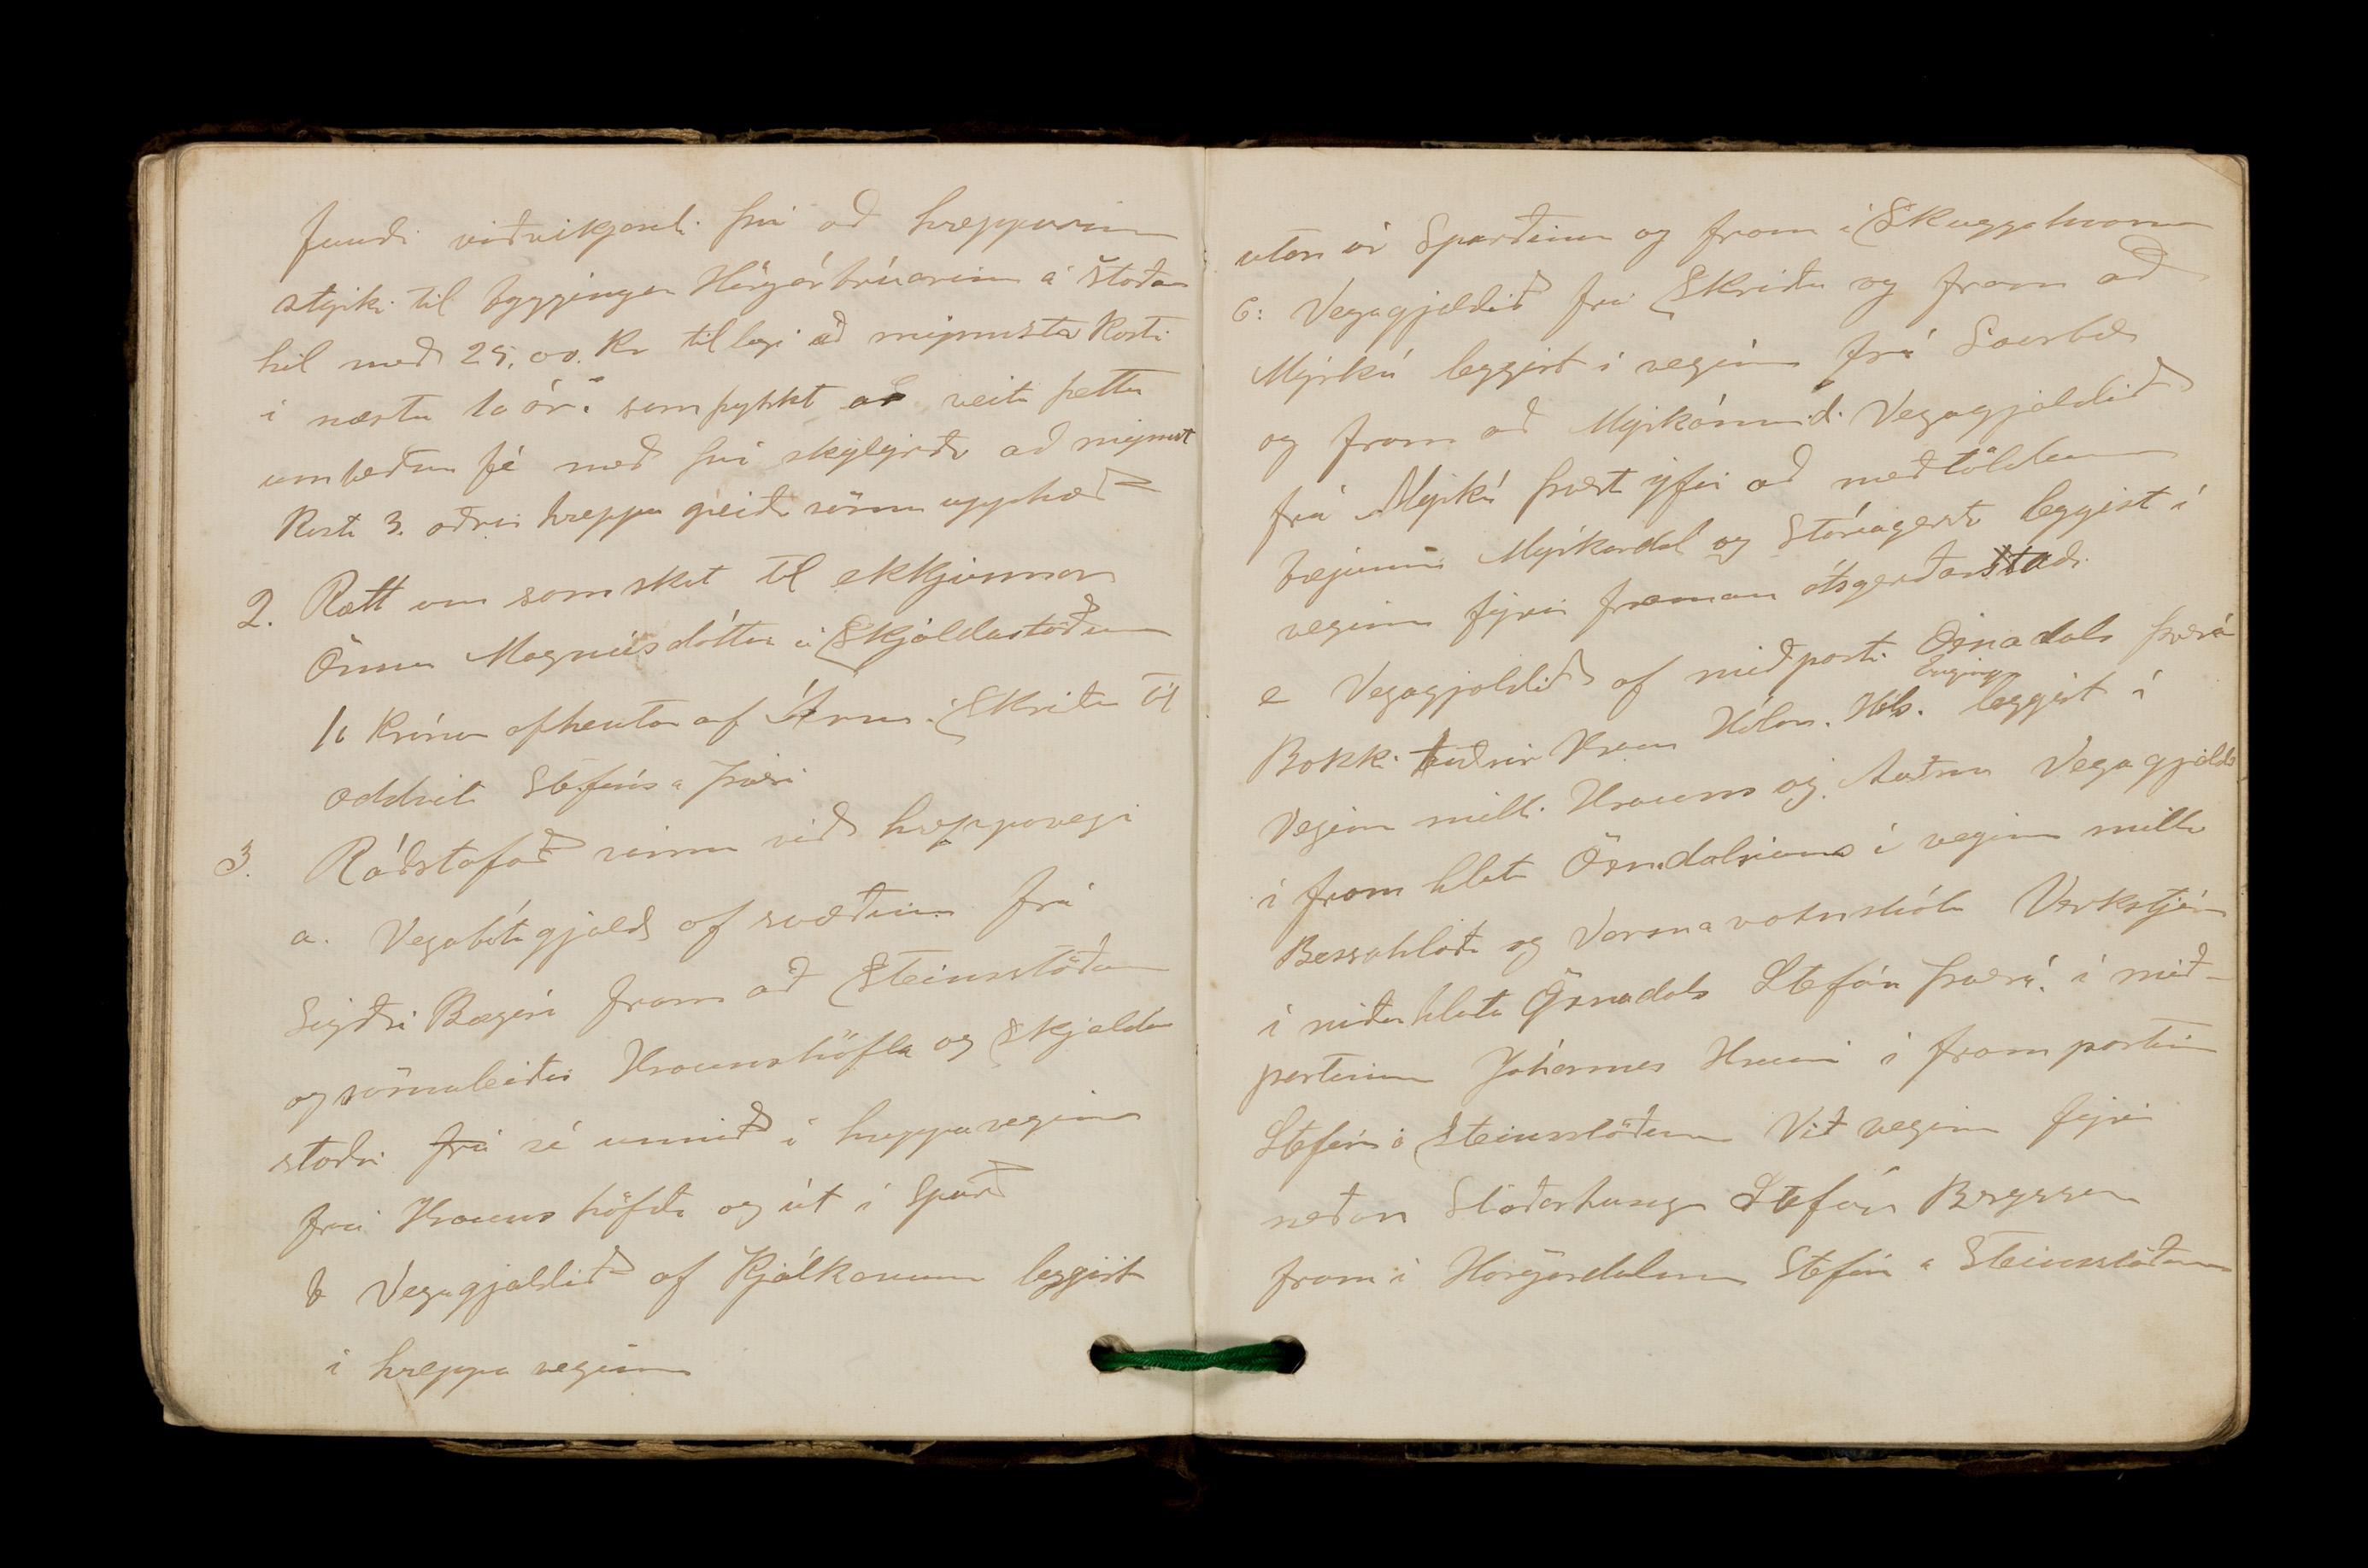 fundi viðvikjandi því að hreppurinn
styrki til byggingar Hörgárbrúarinnar á Staðar
hil með 25,00. Kr tillagi að minnsta Kosti
í næstu 10 ár. samþykkt að veita þetta
umbeðna fé með því skylyrði að minnst
Kosti 3. aðrir hreppar greiði sömu upphæð
2. Rætt um samskot til ekkjunnar
Önnu Magnúsdóttur á Skjaldastöðum
16 Krónur afhentar af Árna í Skriðu til
oddvita Stefáns á Þverá
3. Ráðstafað vinnu við hreppsvegi
a. Vegabótagjald af svæðinu frá
Syðri Bægisá fram að Steinsstöðum
og sömuleiðis Hraunshöfða og Skjalda
staði frá sé unnið í hreppaveginn
frá Hraunshöfða og út í Sparð
b Vegagjaldið af Kjálkanum leggist
í hreppa veginn
utan úr Sparðinu og fram í Skuggahvamm
c: Vegagjaldið frá Skriðu og fram að
Myrká leggist í veginn frá Saurbæ
og fram að Myrkánni d. Vegagjaldið
frá Myrká þvert yfir að meðtöldum
bæjunum Myrkárdal og Stóragerði leggist í
veginn fyrir framan ásgerðarstaði
e Vegagjaldið af miðparti Öxnadals Þverá
Bakki Auðnir Hraun Hólar. Háls. Engimýri leggist í
Veginn milli Hrauns og Auðna Vegagjaldið
í fram hluta Öxnadalsins í veginn milli
Bessahlaða og Varmavatnshóla Verkstjórn
í neðri hluta Öxnadals Stefán Þverá. í mið-
partinum Jóhannes Hrauni í frampartinum
Stefán á Steinsstöðum Við veginn fyrir
neðan Staðartungu Stefán Bergsson
fram í Hörgárdalnum Stefán á Steinsstöðum